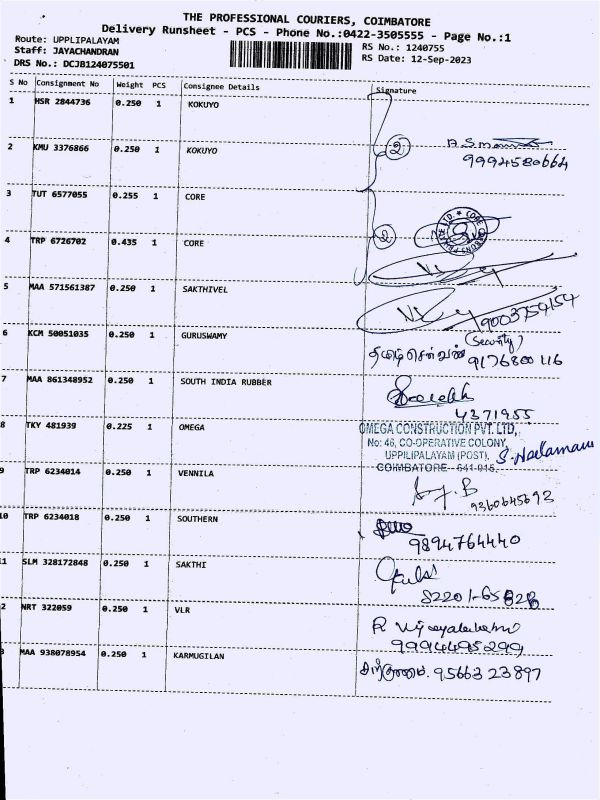 THE PROFESSIONAL COURIERS, COIMBATORE
Delivery Runsheet - PCS - Phone No.:0422-3505555 - Page No.:1
Route: UPPLIPALAYAM
Staff: JAYACHANDRAN
DRS No.: DCJB124075501
RS No.: 1240755
RS Date: 12-Sep-2023
S No Consignment No Weight PCS Consignee Details Signature
1 HSR 2844736 0.250 1 KOKUYO
2 KMU 3376866 0.250 1 KOKUYO 2
9994580664
3 TUT 6577055 0.255 1 CORE
4 TRP 6726702 0.435 1 CORE 2
5 MAA 571561387 0.250 1 SAKTHIVEL
9003754154
6 KCM 50051035 0.250 1 GURUSWAMY (Security)
9176800116
7 MAA 861348952 0.250 1 SOUTH INDIA RUBBER
4371955
8 TKY 481939 0.225 1 OMEGA
OMEGA CONSTRUCTION PVT. LTD,
No: 46, CO-OPERATIVE COLONY,
UPPILIPALAYAM (POST),
COIMBATORE - 641 015.
9 TRP 6234014 0.250 1 VENNILA
9360645693
10 TRP 6234018 0.250 1 SOUTHERN
9894764440
11 SLM 328172848 0.250 1 SAKTHI
2 NRT 322059 0.250 1 VLR
9994495299
3 MAA 938078954 0.250 1 KARMUGILAN
95663 23897